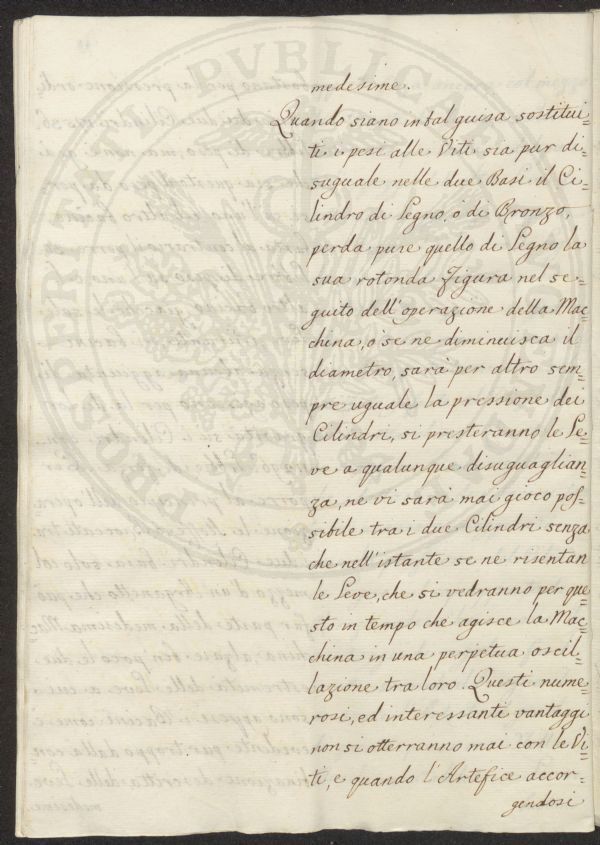 medesime.
Quando siano in tal guisa sostitui=
ti i pesi alle Viti sia pur di=
suguale nelle due Basi il Ci=
lindro di Legno, ò di Bronzo,
perda pure quello di Legno la
sua rotonda Figura nel se=
guito dell'operazione della Mac=
china, ò se ne diminuisca il
diametro, sarà per altro sem=
pre uguale la pressione dei
Cilindri, si presteranno le Le=
ve a qualunque disuguaglian=
za, ne vi sarà mai gioco pos=
sibile tra i due Cilindri senza
che nell'istante se ne risentan
le Leve, che si vedranno per que=
sto in tempo che agisce la Mac=
china in una perpetua oscil=
lazione tra loro. Questi nume=
rosi, ed interessanti vantaggi
non si otterranno mai con le Vi=
ti, e quando l'Artefice accor=
gendosi